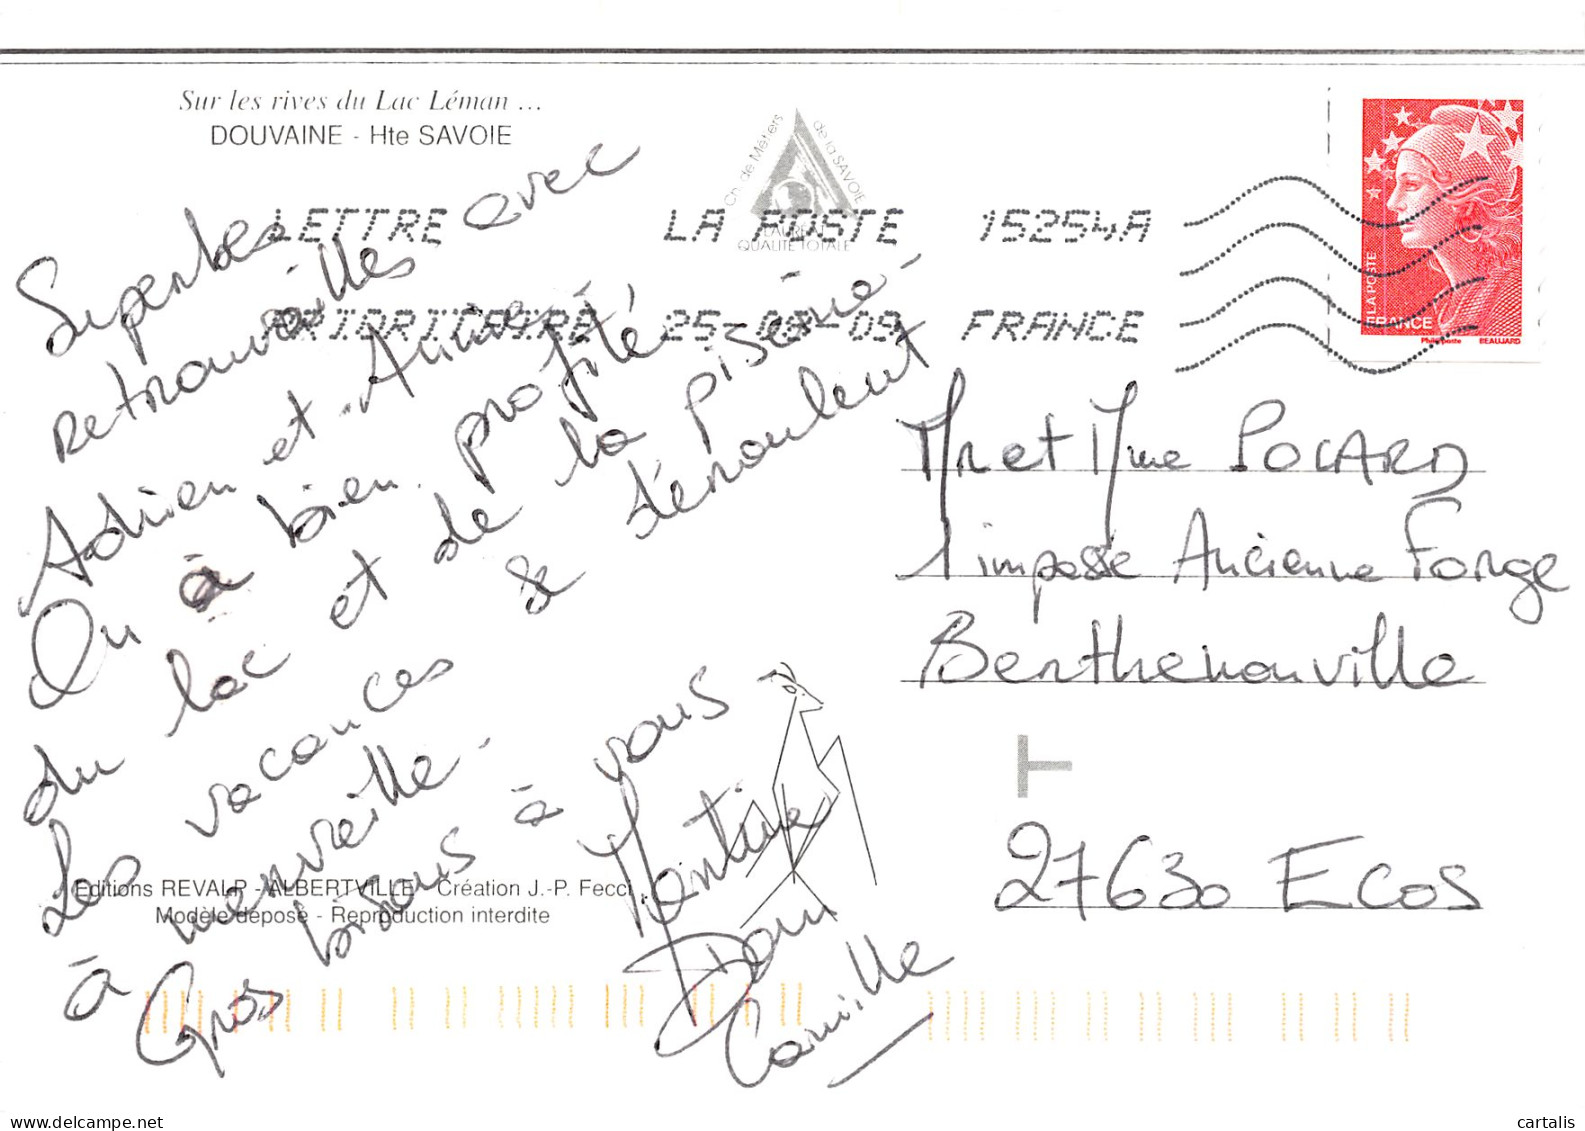 Sur les rives du Lac Léman ...
DOUVAINE - Hte SAVOIE
Ch. de Métiers de la SAVOIE
LAURÉAT
QUALITÉ TOTALE
LETTRE LA POSTE 15254A
PRIORITAIRE 25-08-09 FRANCE
LA POSTE
FRANCE
Phil@poste BEAUJARD
Superbes retrouvailles avec
Adrien et Aurore.
On à bien profité,
du lac et de la piscine.
Les vacances se déroulent
à merveille.
Gros bisous à vous
Martine
Dom
Camille
Mr et Mme POCARD
1 impasse Ancienne Forge
Berthenonville
27630 ECOS
Editions REVALP - ALBERTVILLE - Création J.-P. Fecci
Modèle déposé - Reproduction interdite
My-WebStore cartalis